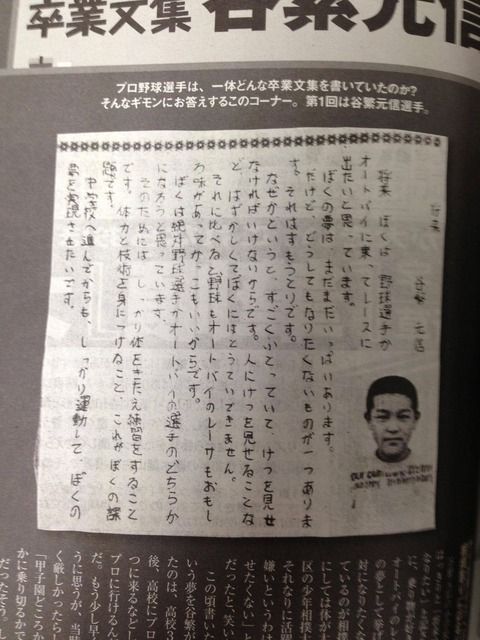 卒業文集 谷繁元信
プロ野球選手は、一体どんな卒業文集を書いていたのか？
そんなギモンにお答えするこのコーナー。第1回は谷繁元信選手。
将来
谷繁 元信
将来 ぼくは、野球選手か
オートバイに乗ってレースに
出たいと思っています。
ぼくの夢は、まだまだいっぱいあります。
だけど、どうしてもなりたくないものが一つありま
す。それはすもうとりです。
なぜかというと、すごくふとっていて、けつを見せ
なければいけないからです。人にけつを見せることな
ど、はずかしくてぼくにはとうていできません。
それに比べると、野球もオートバイのレーサもおもし
ろ味があってかっこもいいからです。
ぼくは絶対野球選手かオートバイの選手のどちらか
になろうと思っています。
そのためには、しっかり体をきたえ練習をすること
です。体力と技術を身につけること、これがぼくの課
題です。
中学校へ進んでからも、しっかり運動して、ぼくの
夢を実現させたいです。
区の少年相撲
それなりに
嫌いというわ
せたくない」
だったと、笑い
この頃書いた
いう夢を谷繁が
たのは、高校3
後、高校にプロ
つに来るなどし
プロに行けるん
だ。もう少し早
うに思うが、当
く厳しかったらし
「甲子園どころか
かに乗り切るかで
だったそう。